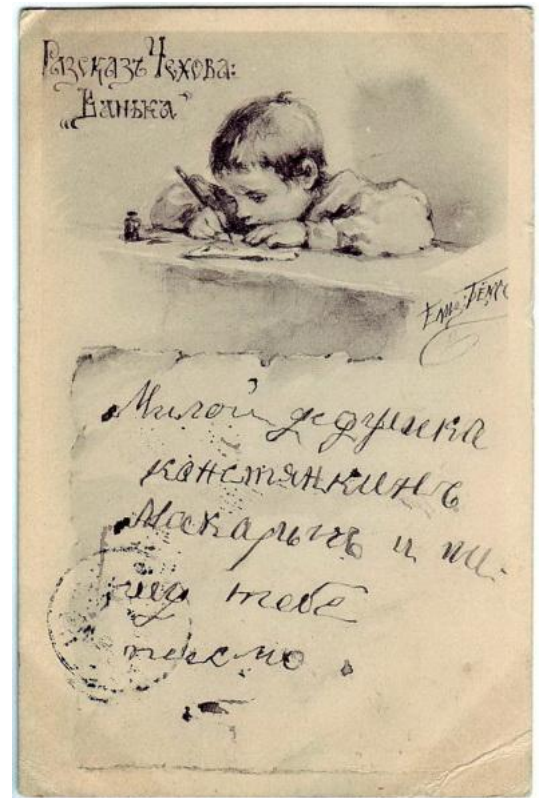 Разсказъ Чехова:
„Ванька“
Елиз. Бемъ
Милой дедушка
констянкинъ
Макарычъ и пи-
шу тебе
писмо.